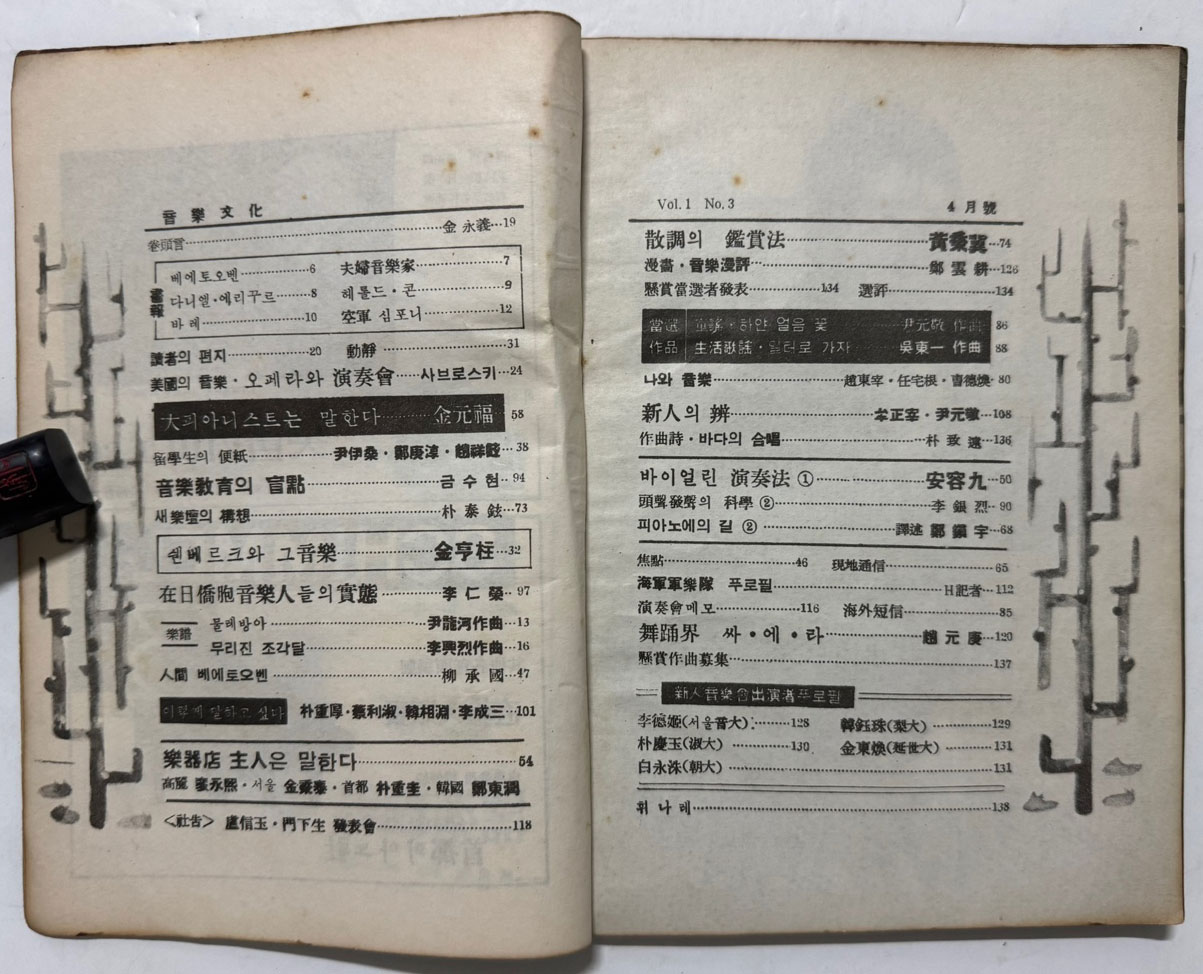 音樂文化
卷頭言 金永義 19
畫報
베에토오벤 6 夫婦音樂家 7
다니엘·에리꾸르 8 헤롤드·콘 9
바레 10 空軍 심포니 12
讀者의 편지 20 動靜 31
美國의 音樂·오페라와 演奏會 사브로스키 24
大피아니스트는 말한다 金元福 58
留學生의 便紙 尹伊桑·鄭庚淳· 38
音樂敎育의 盲點 금수현 94
새樂壇의 構想 朴泰鉉 73
쉔베르크와 그音樂 金亨柱 32
在日僑胞音樂人들의 實態 李仁榮 97
樂譜
물레방아 尹龍河作曲 13
무리진 조각달 李興烈作曲 16
人間 베에토오벤 柳承國 47
이렇게 말하고 싶다 朴重厚·蔡利淑·韓相淵·李成三 101
樂器店 主人은 말한다 54
高麗 永熙·서울 金秉泰·首都 朴重圭·韓國 鄭東潤
<社告> 盧信玉·門下生 發表會 118
Vol.1 No.3 4月號
散調의 鑑賞法 黃秉冀 74
漫畵·音樂漫評 鄭雲耕 126
懸賞當選者發表 134 選評 134
當選作品
童謠·하얀 얼음 꽃 尹元敬 作曲 86
生活歌謠·일터로 가자 吳東一 作曲 88
나와 音樂 趙東宰·任宅根·曺德煥 80
新人의 辨 李正宰·尹元敬 108
作曲詩·바다의 合唱 朴致遠 136
바이얼린 演奏法 ① 安容九 50
頭聲發聲의 科學 ② 李銀烈 90
피아노에의 길 ② 譯述 鄭鎭宇 68
焦點 46 現地通信 65
海軍軍樂隊 푸로필 H記者 112
演奏會메모 116 海外短信 85
舞踊界 싸·에·라 趙元庚 120
懸賞作曲募集 137
新人音樂會出演者푸로필
李德姬(서울音大) 128 韓鈺珠(梨大) 129
朴慶玉(淑大) 130 金東煥(延世大) 131
白永洙(朝大) 131
뒤나레 138